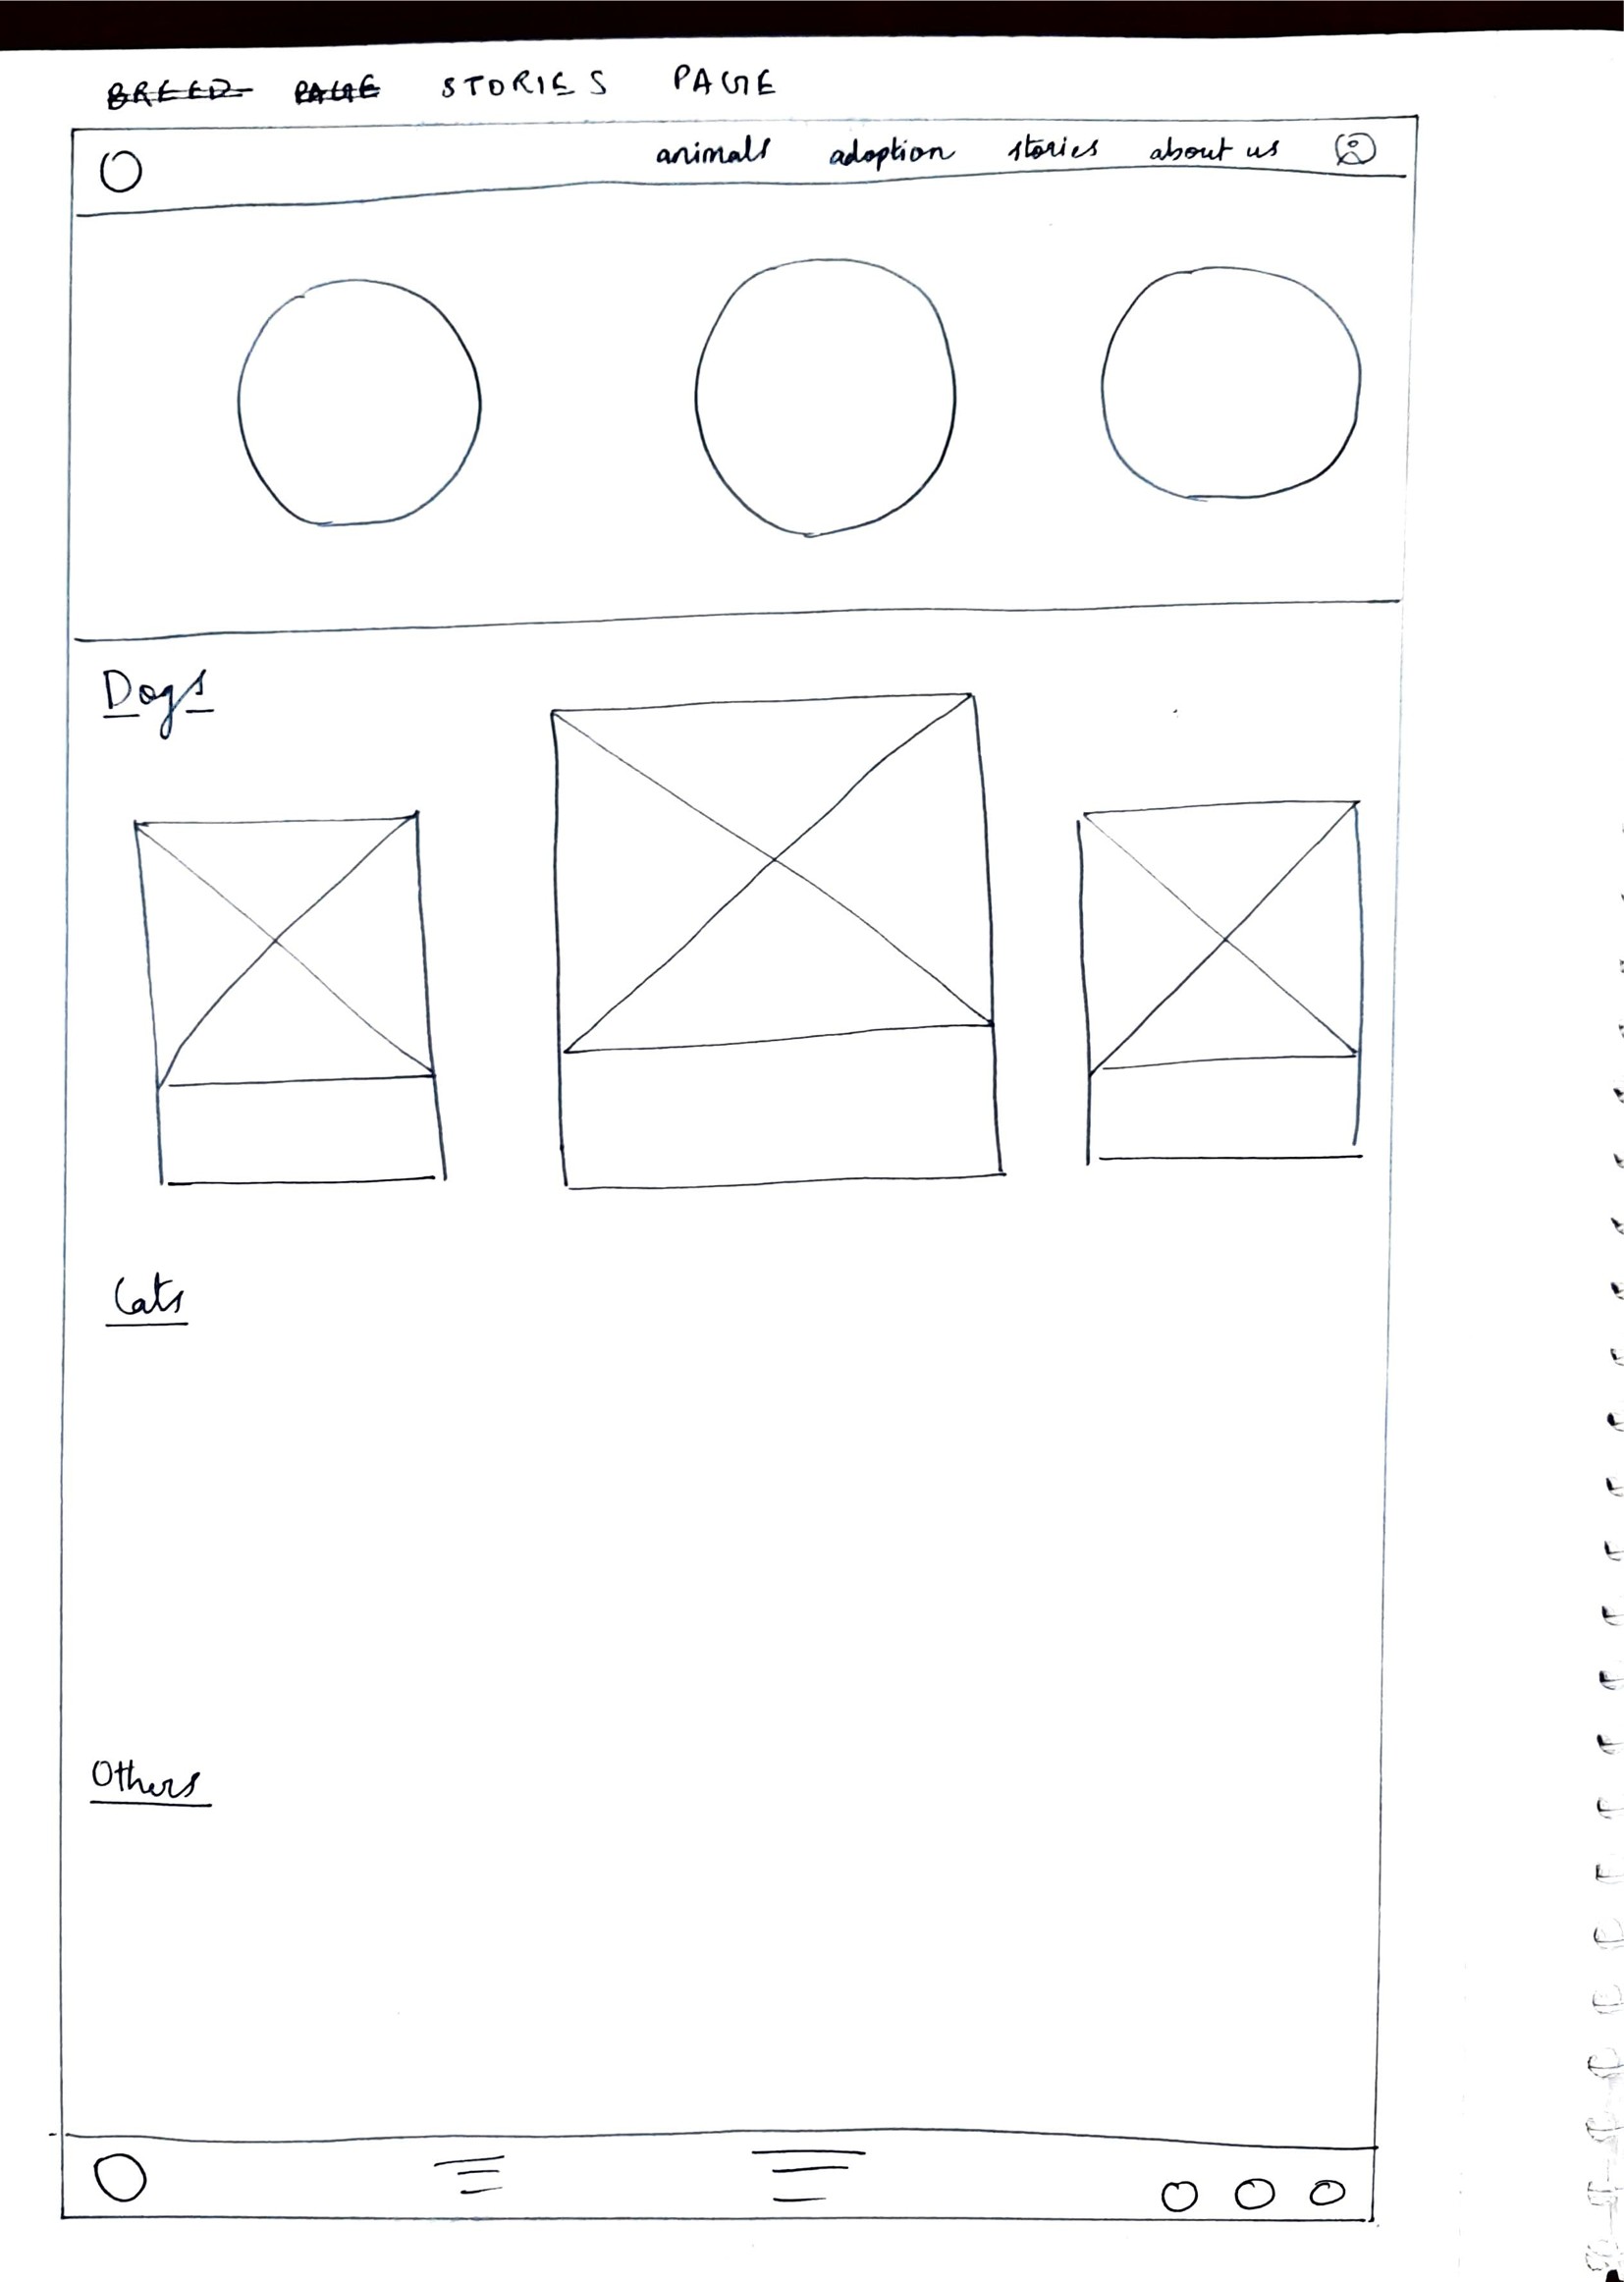 BREED PAGE STORIES PAGE
animals adoption stories about us
Dogs
Cats
Others